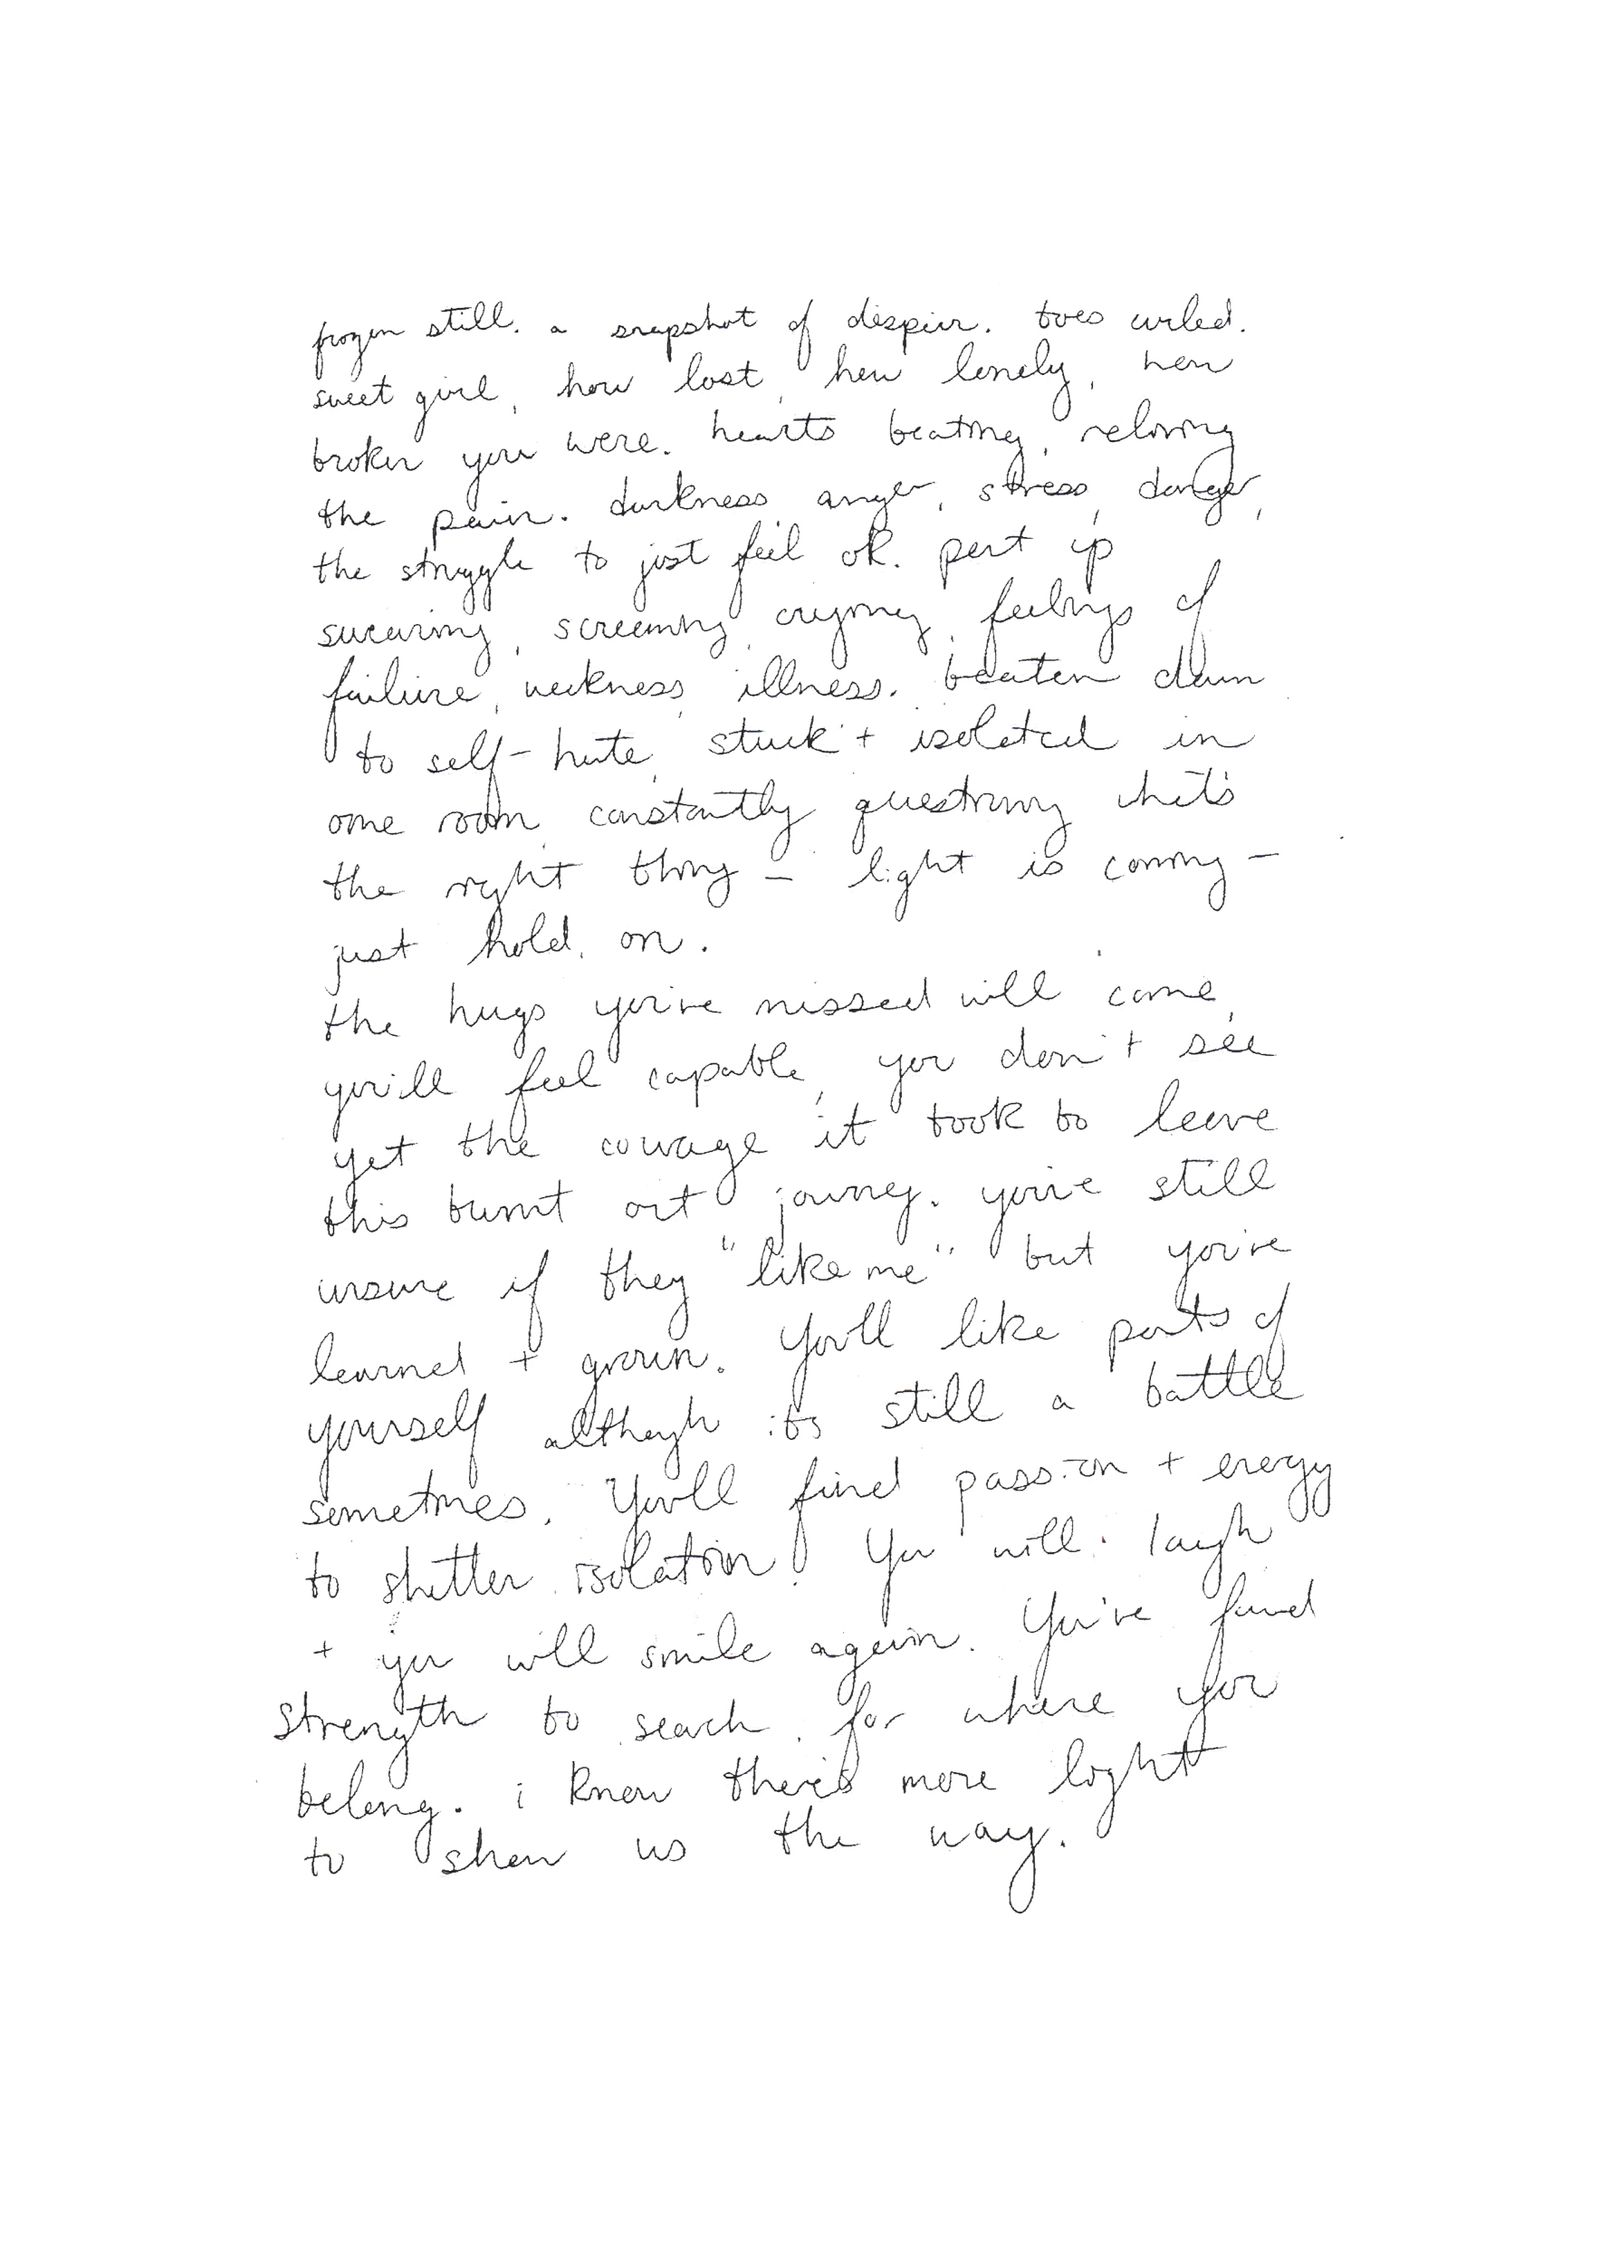 frozen still. a snapshot of despair. toes curled.
sweet girl, how lost, how lonely, how
broken you were. hearts beating, reliving
the pain. darkness, anger, stress, danger,
the struggle to just feel ok. pent up
swearing, screaming, crying, feelings of
failure, weakness, illness. beaten down
to self-hate, stuck + isolated in
one room, constantly questioning what's
the right thing - light is coming -
just hold on.
the hugs you've missed will come,
you'll feel capable, you don't see
yet the courage it took to leave
this burnt out journey. you're still
unsure if they "like me" but you've
learned + grown. You'll like parts of
yourself although its still a battle
sometimes. You'll find passion + energy
to shatter isolation. You will laugh
+ you will smile again. You've found
strength to search for where you
belong. i know there's more light
to show us the way.